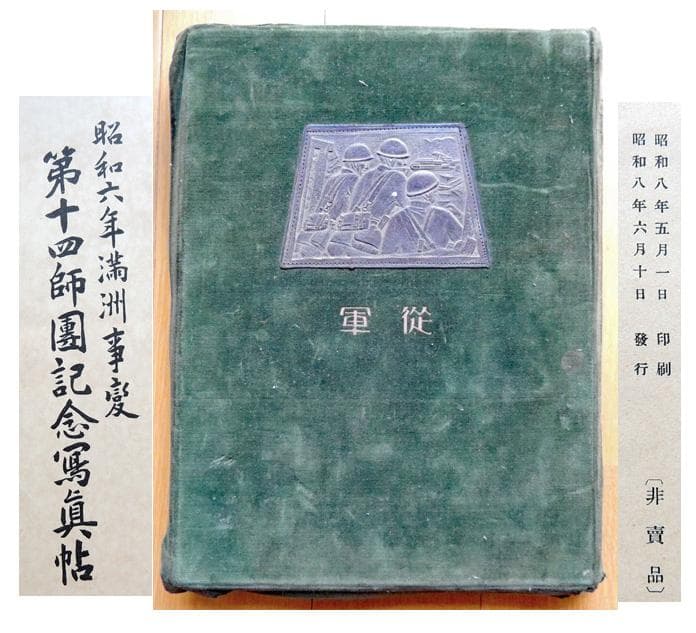 昭和六年滿洲事變
第十四師團記念寫眞帖
從軍
昭和八年五月一日 印刷
昭和八年六月十日 發行
〔非賣品〕